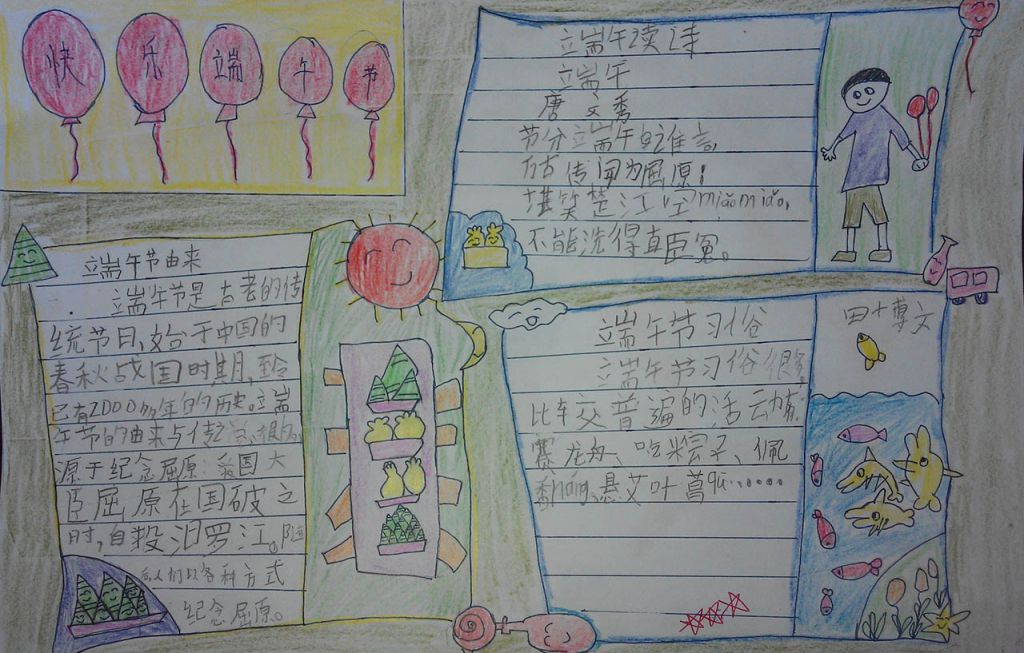 快乐端午节
端午读诗
端午
唐 文秀
节分端午自谁言,
万古传闻为屈原!
堪笑楚江空miǎo miǎo,
不能洗得直臣冤。
端午节由来
端午节是古老的传
统节日,始于中国的
春秋战国时期,至今
已有2000多年的历史。端
午节的由来与传说很多
源于纪念屈原:爱国大
臣屈原在国破之
时,自投汩罗江。随
后人们以各种方式
纪念屈原。
田博文
端午节习俗
端午节习俗很多
比较普遍的活动有
赛龙舟、吃粽子、佩
香náng、悬艾叶菖